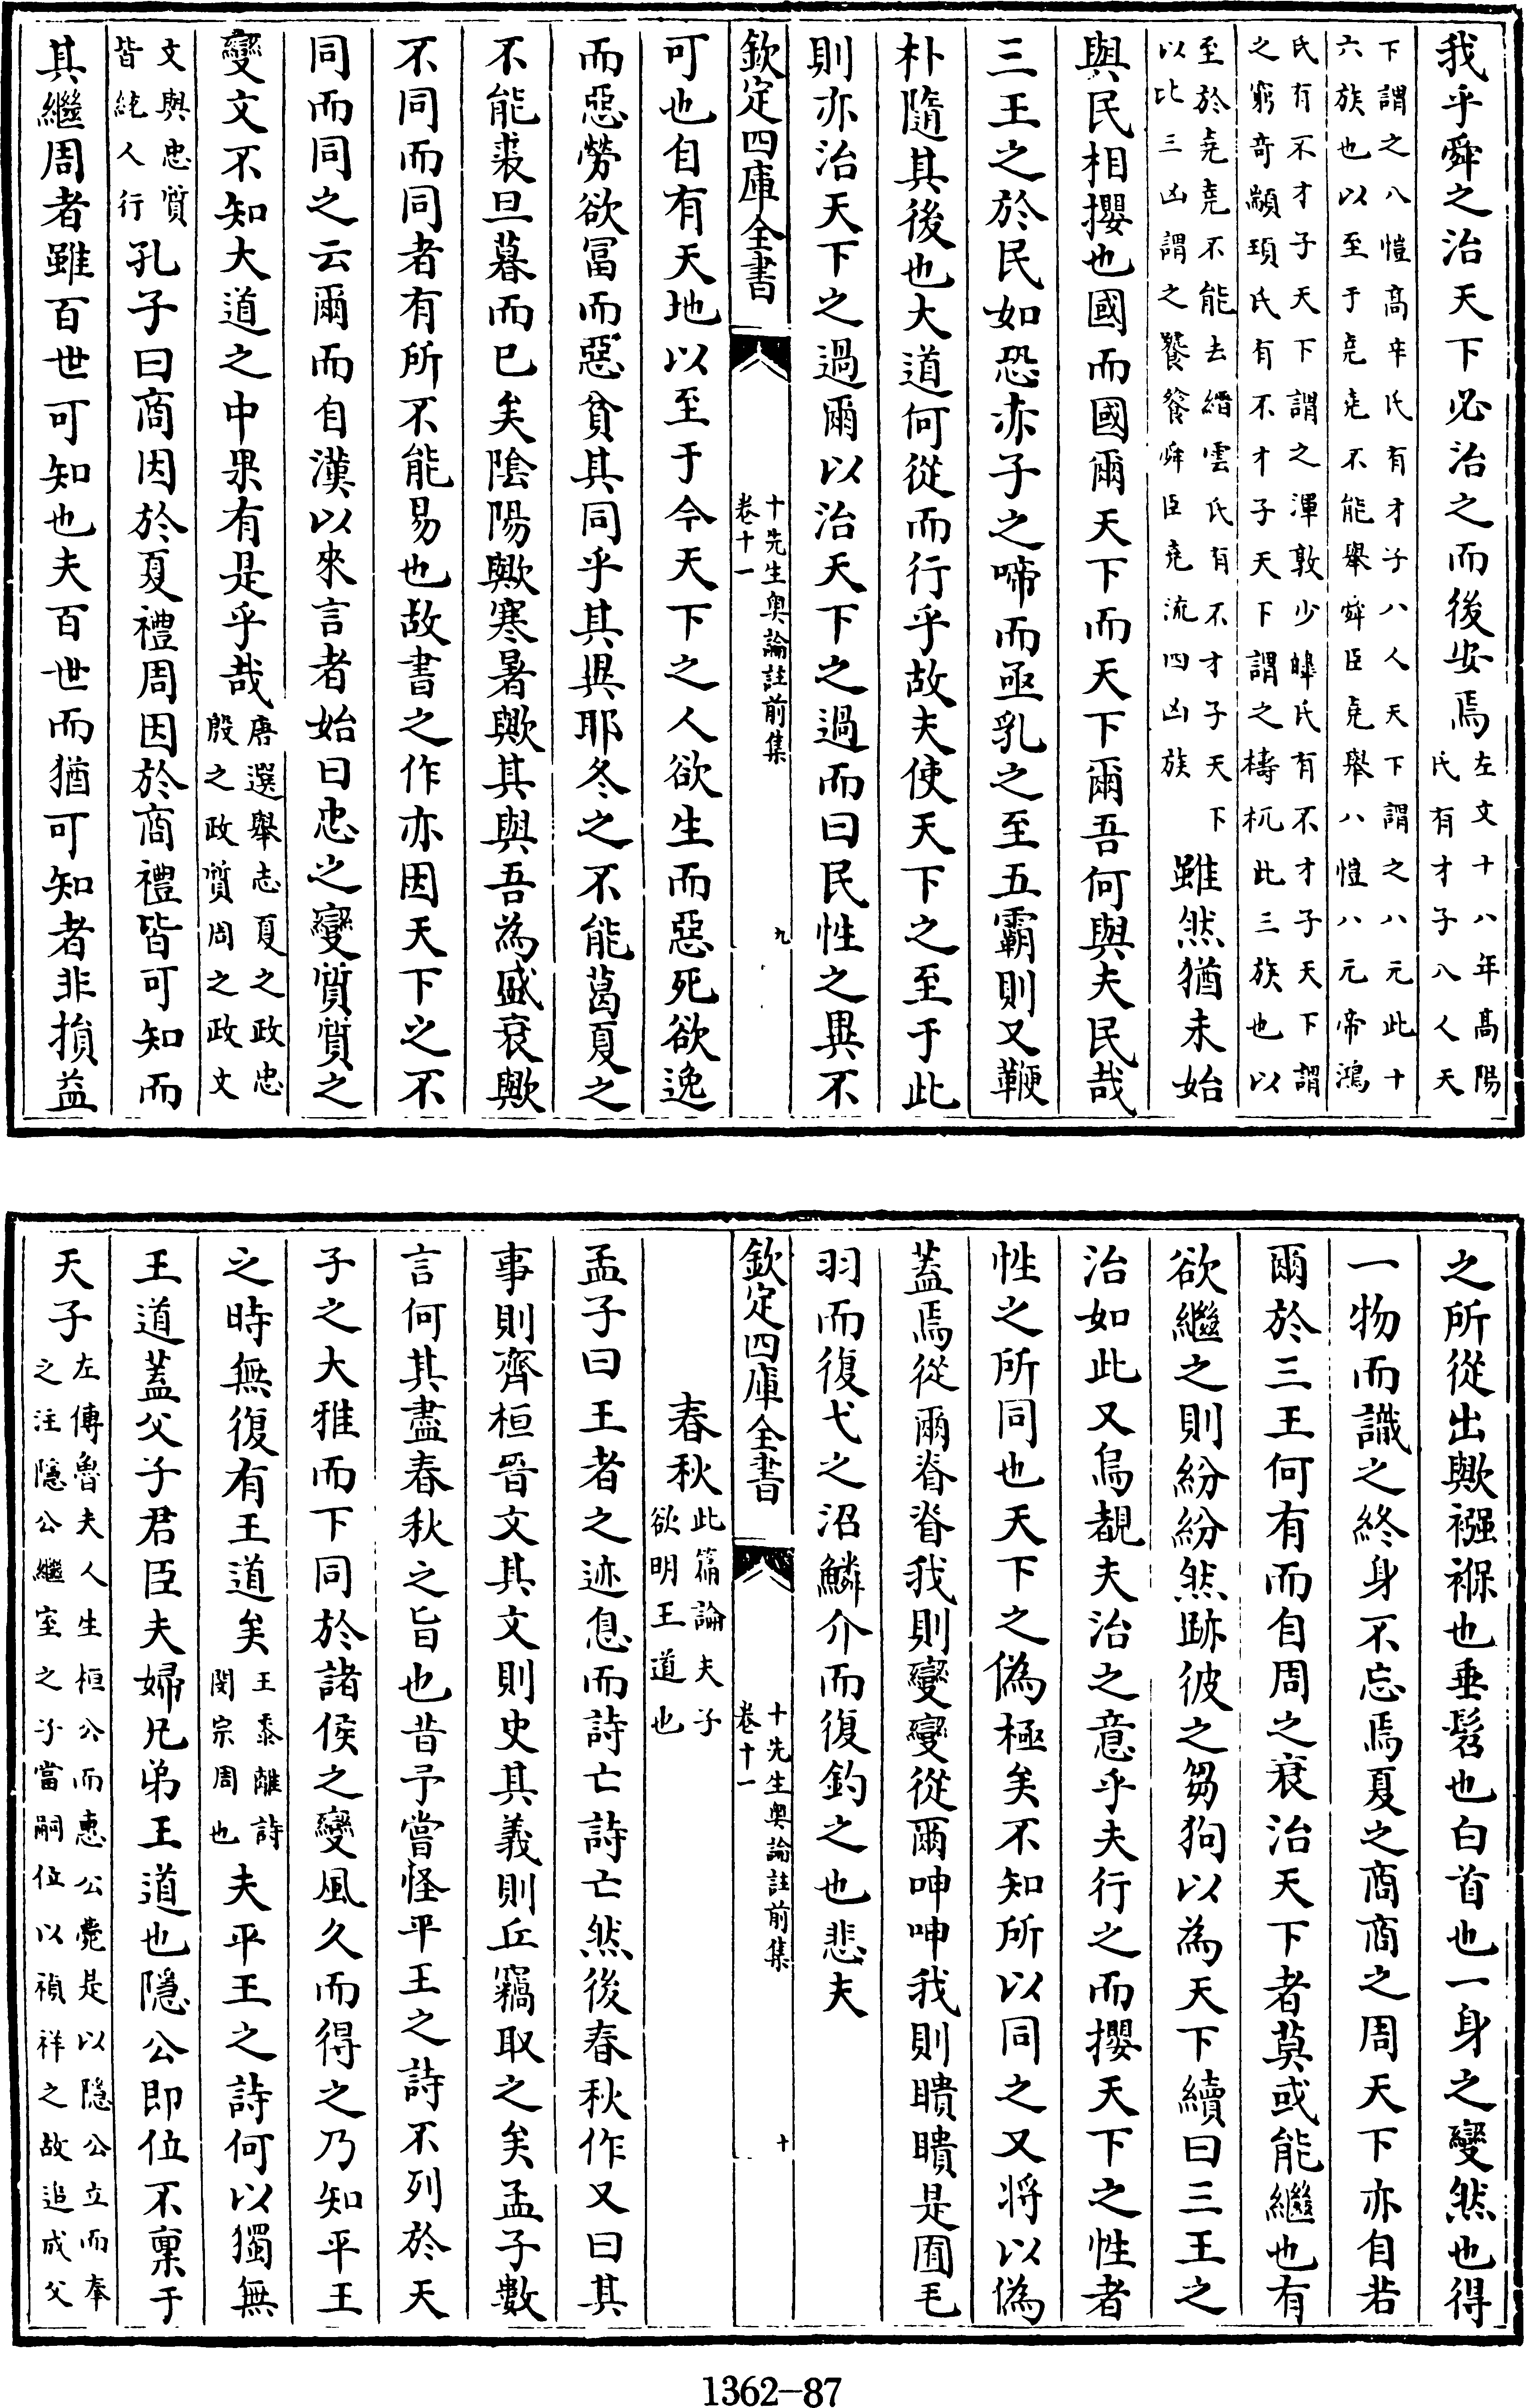 我乎舜之治天下必治之而後安焉左文十八年高陽氏有才子八人天
下謂之八愷高辛氏有才子八人天下謂之八元此十六族也以至于堯堯不能舉舜臣堯舉八愷八元帝鴻
氏有不才子天下謂之渾敦少皞氏有不才子天下謂之窮奇顓頊氏有不才子天下謂之檮杌此三族也以
至於堯堯不能去縉雲氏有不才子天下以比三凶謂之饕餮舜臣堯流四凶族雖然猶未始
與民相攖也國而國爾天下而天下爾吾何與夫民哉
三王之於民如恐赤子之啼而亟乳之至五霸則又鞭
朴隨其後也大道何從而行乎故夫使天下之至于此
則亦治天下之過爾以治天下之過而曰民性之異不
欽定四庫全書
十先生奥論註前集
卷十一
九
可也自有天地以至于今天下之人欲生而惡死欲逸
而惡勞欲冨而惡貧其同乎其異耶冬之不能葛夏之
不能裘旦暮而已矣陰陽歟寒暑歟其與吾為盛衰歟
不同而同者有所不能易也故書之作亦因天下之不
同而同之云爾而自漢以來言者始曰忠之變質質之
變文不知大道之中果有是乎哉唐選舉志夏之政忠殷之政質周之政文
文與忠質皆綂人行孔子曰商因於夏禮周因於商禮皆可知而
其繼周者雖百世可知也夫百世而猶可知者非損益
之所從出歟襁褓也垂髫也白首也一身之變然也得
一物而識之終身不忘焉夏之商商之周天下亦自若
爾於三王何有而自周之衰治天下者莫或能繼也有
欲繼之則紛紛然跡彼之芻狗以為天下續曰三王之
治如此又烏覩夫治之意乎夫行之而攖天下之性者
性之所同也天下之偽極矣不知所以同之又将以偽
蓋焉從爾眘眘我則變變從爾呻呻我則聩聩是囿毛
羽而復弋之沼鱗介而復釣之也悲夫
欽定四庫全書
十先生奥論註前集
卷十一
十
春秋此篇論夫子欲明王道也
孟子曰王者之迹息而詩亡詩亡然後春秋作又曰其
事則齊桓晉文其文則史其義則丘竊取之矣孟子數
言何其盡春秋之旨也昔予嘗怪平王之詩不列於天
子之大雅而下同於諸侯之變風久而得之乃知平王
之時無復有王道矣王黍離詩閔宗周也夫平王之詩何以獨無
王道蓋父子君臣夫婦兄弟王道也隱公即位不稟于
天子左傳魯夫人生桓公而惠公薨是以隱公立而奉之注隱公繼室之子當嗣位以禎祥之故追成父
1362-87